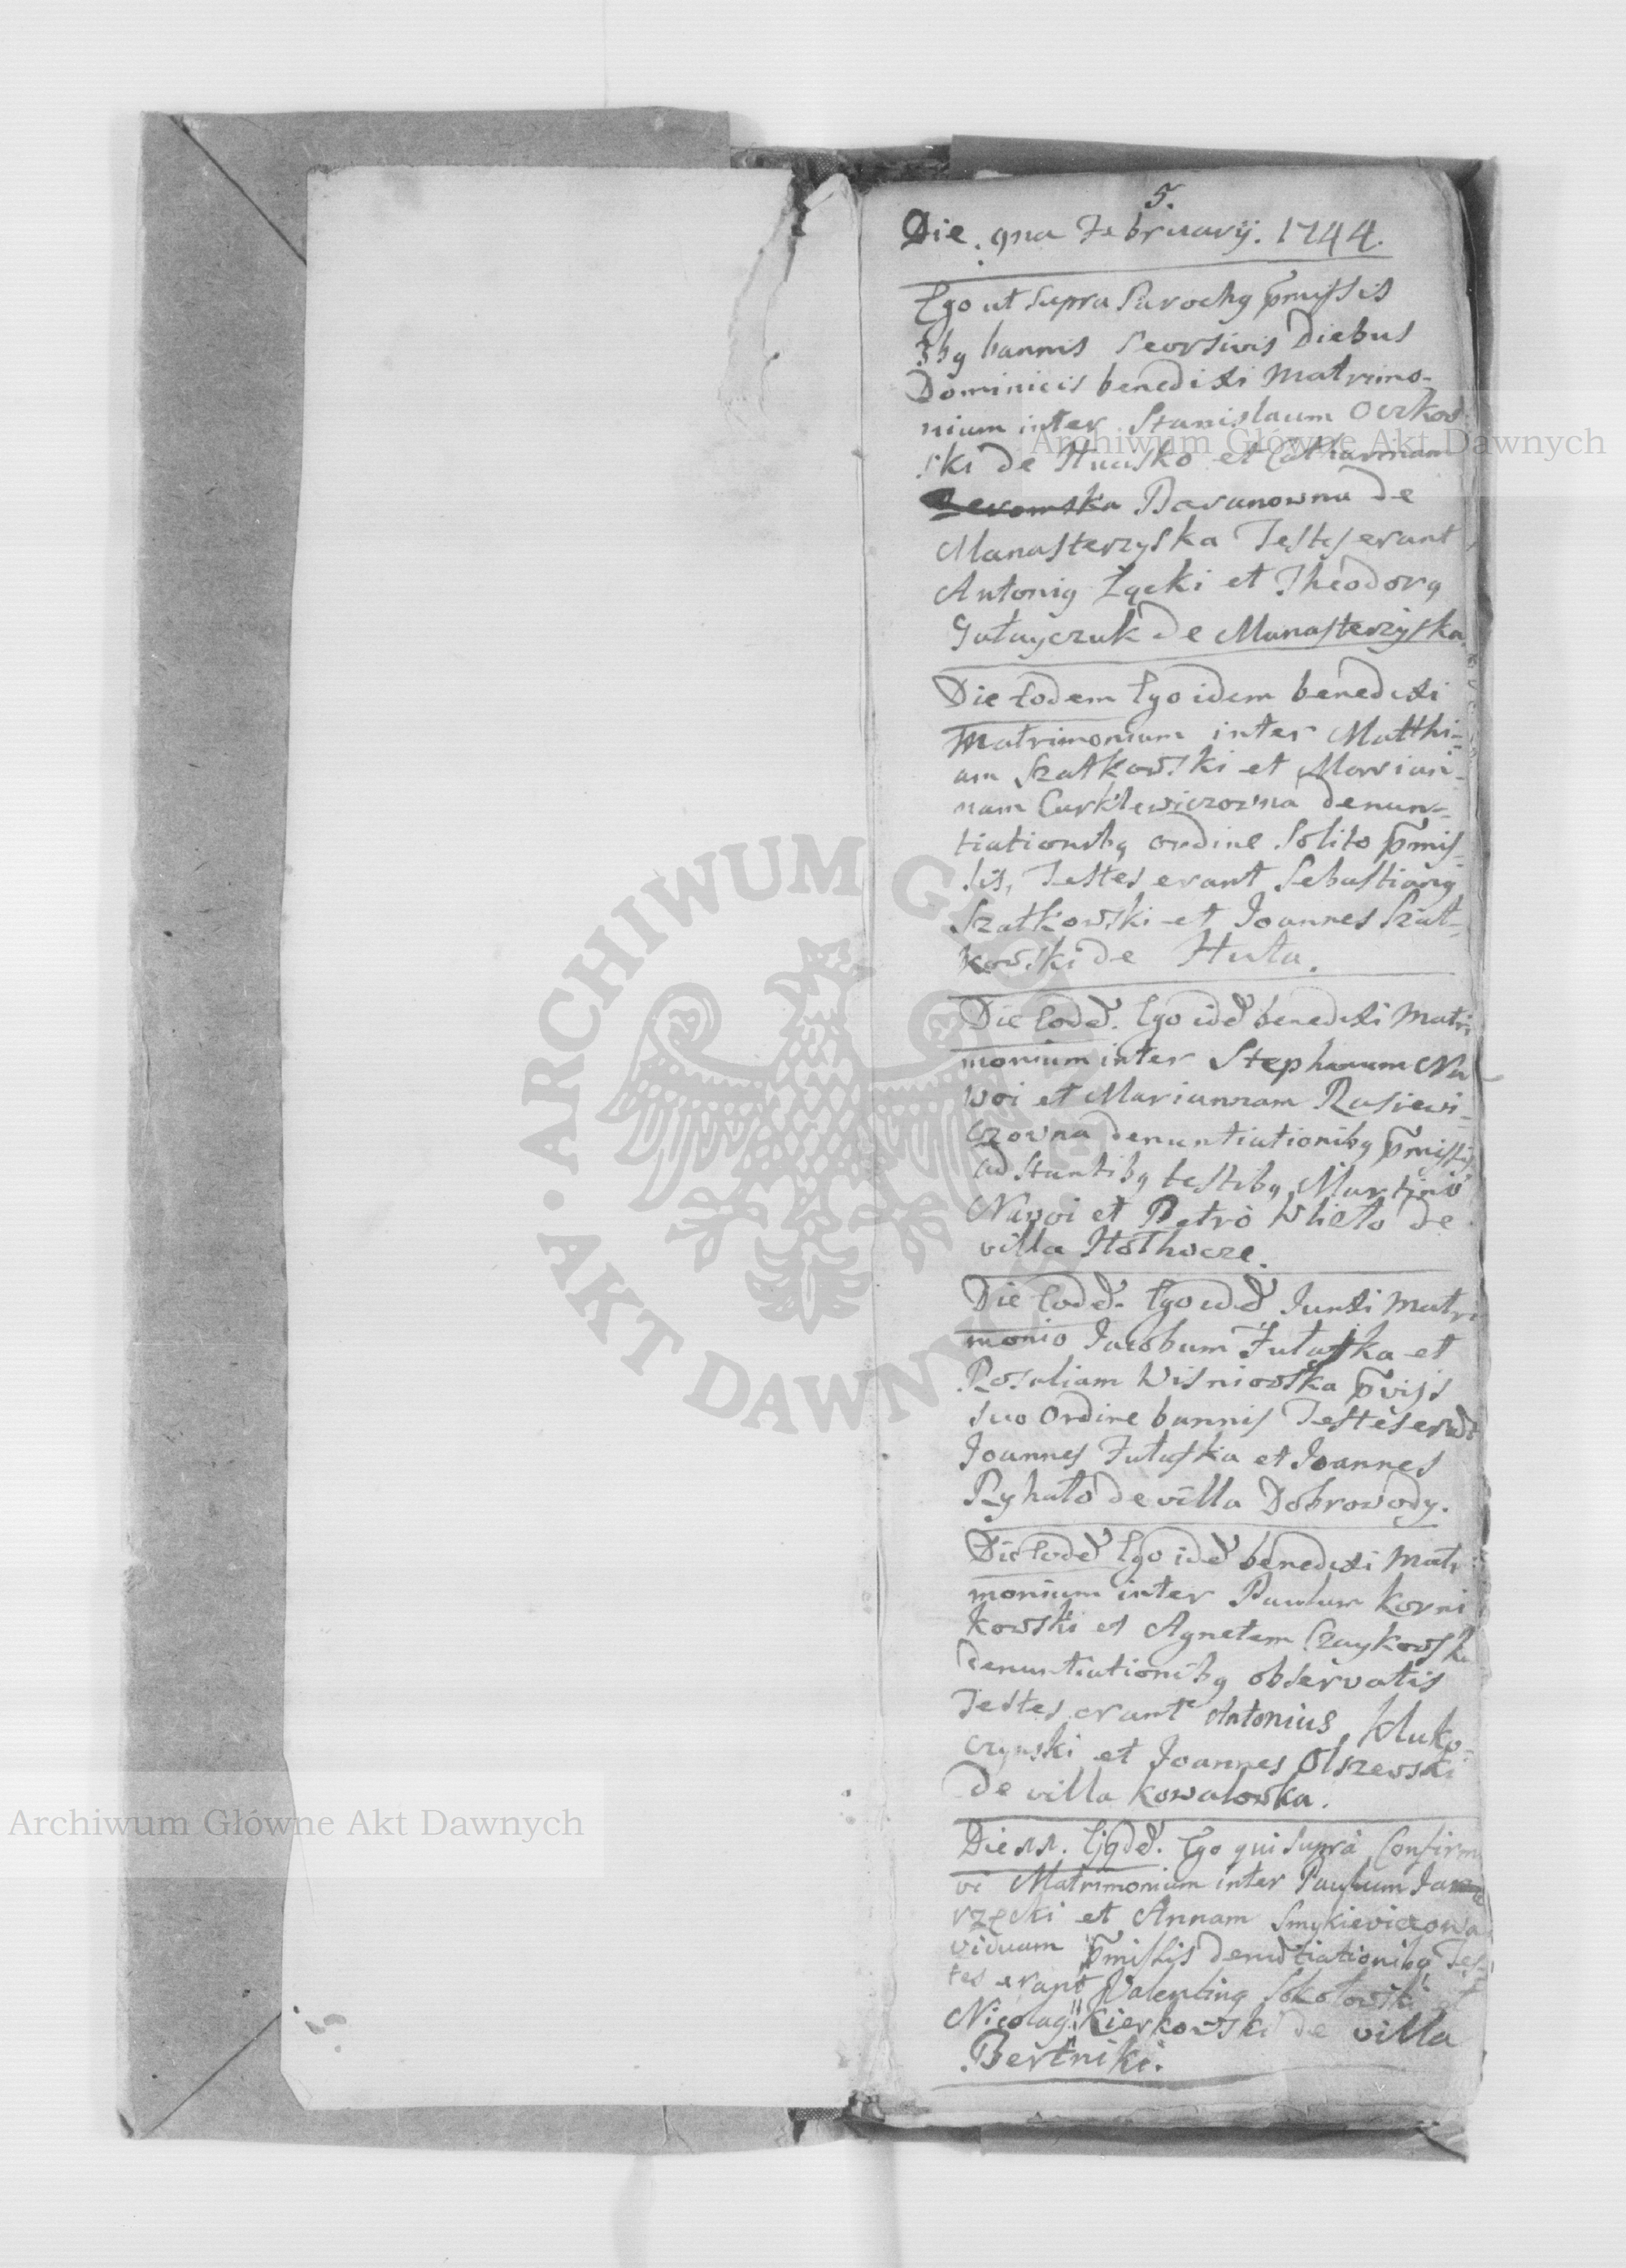 5.
Die. 9na February. 1744.
Ego ut supra Parochq p̄missis
3bq bannis seorsivis Diebus
Dominicis benedixi Matrimo-
nium inter Stanislaum Oczkow
ski de Huisko et Catharinam
Baranowna de
Manasterzyska Testes erant
Antoniq Łącki et Theodorq
Gałayczuk de Manasterzyska
Die Eodem Ego idem benedixi
Matrimonium inter Matthi-
am Szatkowski et Marian-
nam Curklewiczowna denun-
tiationibq ordine solito p̄mis-
sis, Testes erant Sebastianq
Szatkowski et Joannes Szat-
kowski de Huta.
Die Eodē. Ego idē benedixi Matri
monium inter Stephanum Na
woi et Mariannam Rusiewi-
czowna denuntiationibq p̄missis
adstantibq testibq Martino
Nawoi et Petro de
villa Hołhocze.
Die Eodē. Ego idē Iunxi Matri
monio Jacobum Fułaska et
Rosaliam Wisniowska p̄vijs
suo Ordine bannis Testes erant
Joannes Fułaska et Joannes
Ryhało de villa Dobrowody.
Die Eodē Ego idē benedixi Matri
monium inter Paulum Korni
kowski et Agnetem Czaykowska
denuntiationibq observatis
Testes erant Antonius Kluko-
czynski et Joannes Olszewski
de villa Kowalowka.
Die 11. Ejqdē. Ego qui supra Confirma
vi Matrimonium inter Paulum
rzecki et Annam Smykieviczowa
viduam p̄missis denūtiationibq Tes-
tes erant Valentinq Sokołowski et
Nicolaq Kierkowski de villa
Bertniki.
Archiwum Główne Akt Dawnych
Archiwum Główne Akt Dawnych